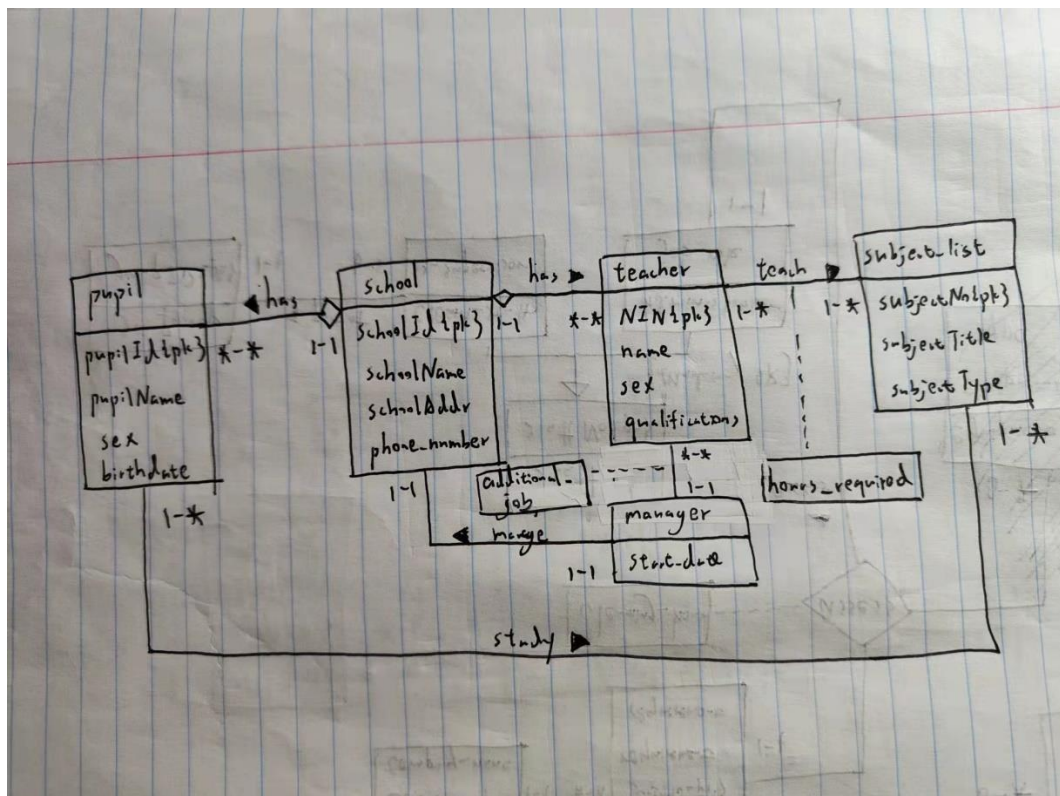 pupil
pupilId{pk}
pupilName
sex
birthdate
has
*-*
1-1
school
schoolId{pk}
schoolName
schoolAddr
phone_number
has
1-1
*-*
teacher
NIN{pk}
name
sex
qualifications
teach
1-*
1-*
subject_list
subjectNo{pk}
subjectTitle
subjectType
1-*
1-*
1-1
additional_
job
*-*
1-1
hours_required
manage
manager
start_date
1-1
study